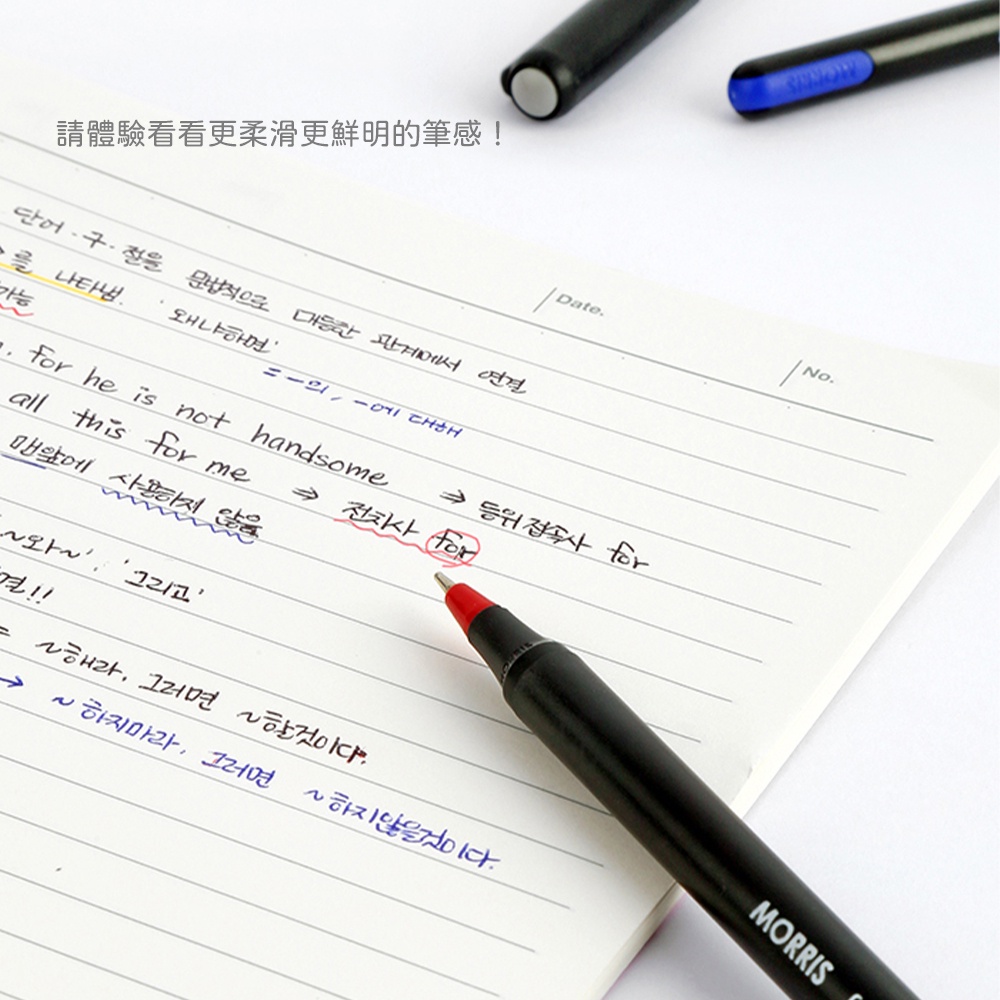 MORRIS
請體驗看看更柔滑更鮮明的筆感！
Date.
No.
단어·구·절을 문법적으로 대등한 관계에서 연결
를 나타냄. '왜냐하면'
가능
= ~의, ~에 대해
for he is not handsome ⇒ 등위접속사 for
all this for me ⇒ 전치사 for
맨앞에 사용하지 않음
~와~', '그리고'
면!!
~해라, 그러면 ~할것이다.
→ ~하지마라, 그러면 ~하지않을것이다.
MORRIS